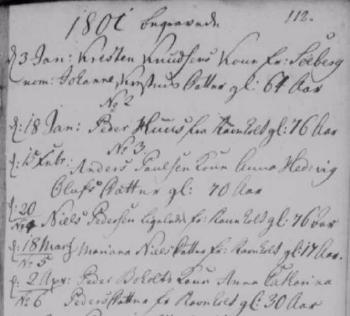 1801 begravede 112.
d. 3 Jan: Kresten Knudsens Kone fr: Seeberg
nom: Johanne Krestens Datter gl: 64 Aar
No 2
d: 18 Jan: Peder Huus fra Ravnholt gl: 76 Aar
No 3
d: 15 Febr:
Anders Paulsen Kone Anna Hedevig
Olufs Datter gl: 70 Aar
d: 20
No 4 Niels Pedersen fr: Ravnholt gl: 76 Aar
d: 18 Marz Mariana Niels Datter fr: Ravnholt gl: 17 Aar.
No 5
d: 2 Apr: Peder Bokolts Kone Anna Cathrina
No 6 Peders Datter fr Ravnholt gl: 30 Aar